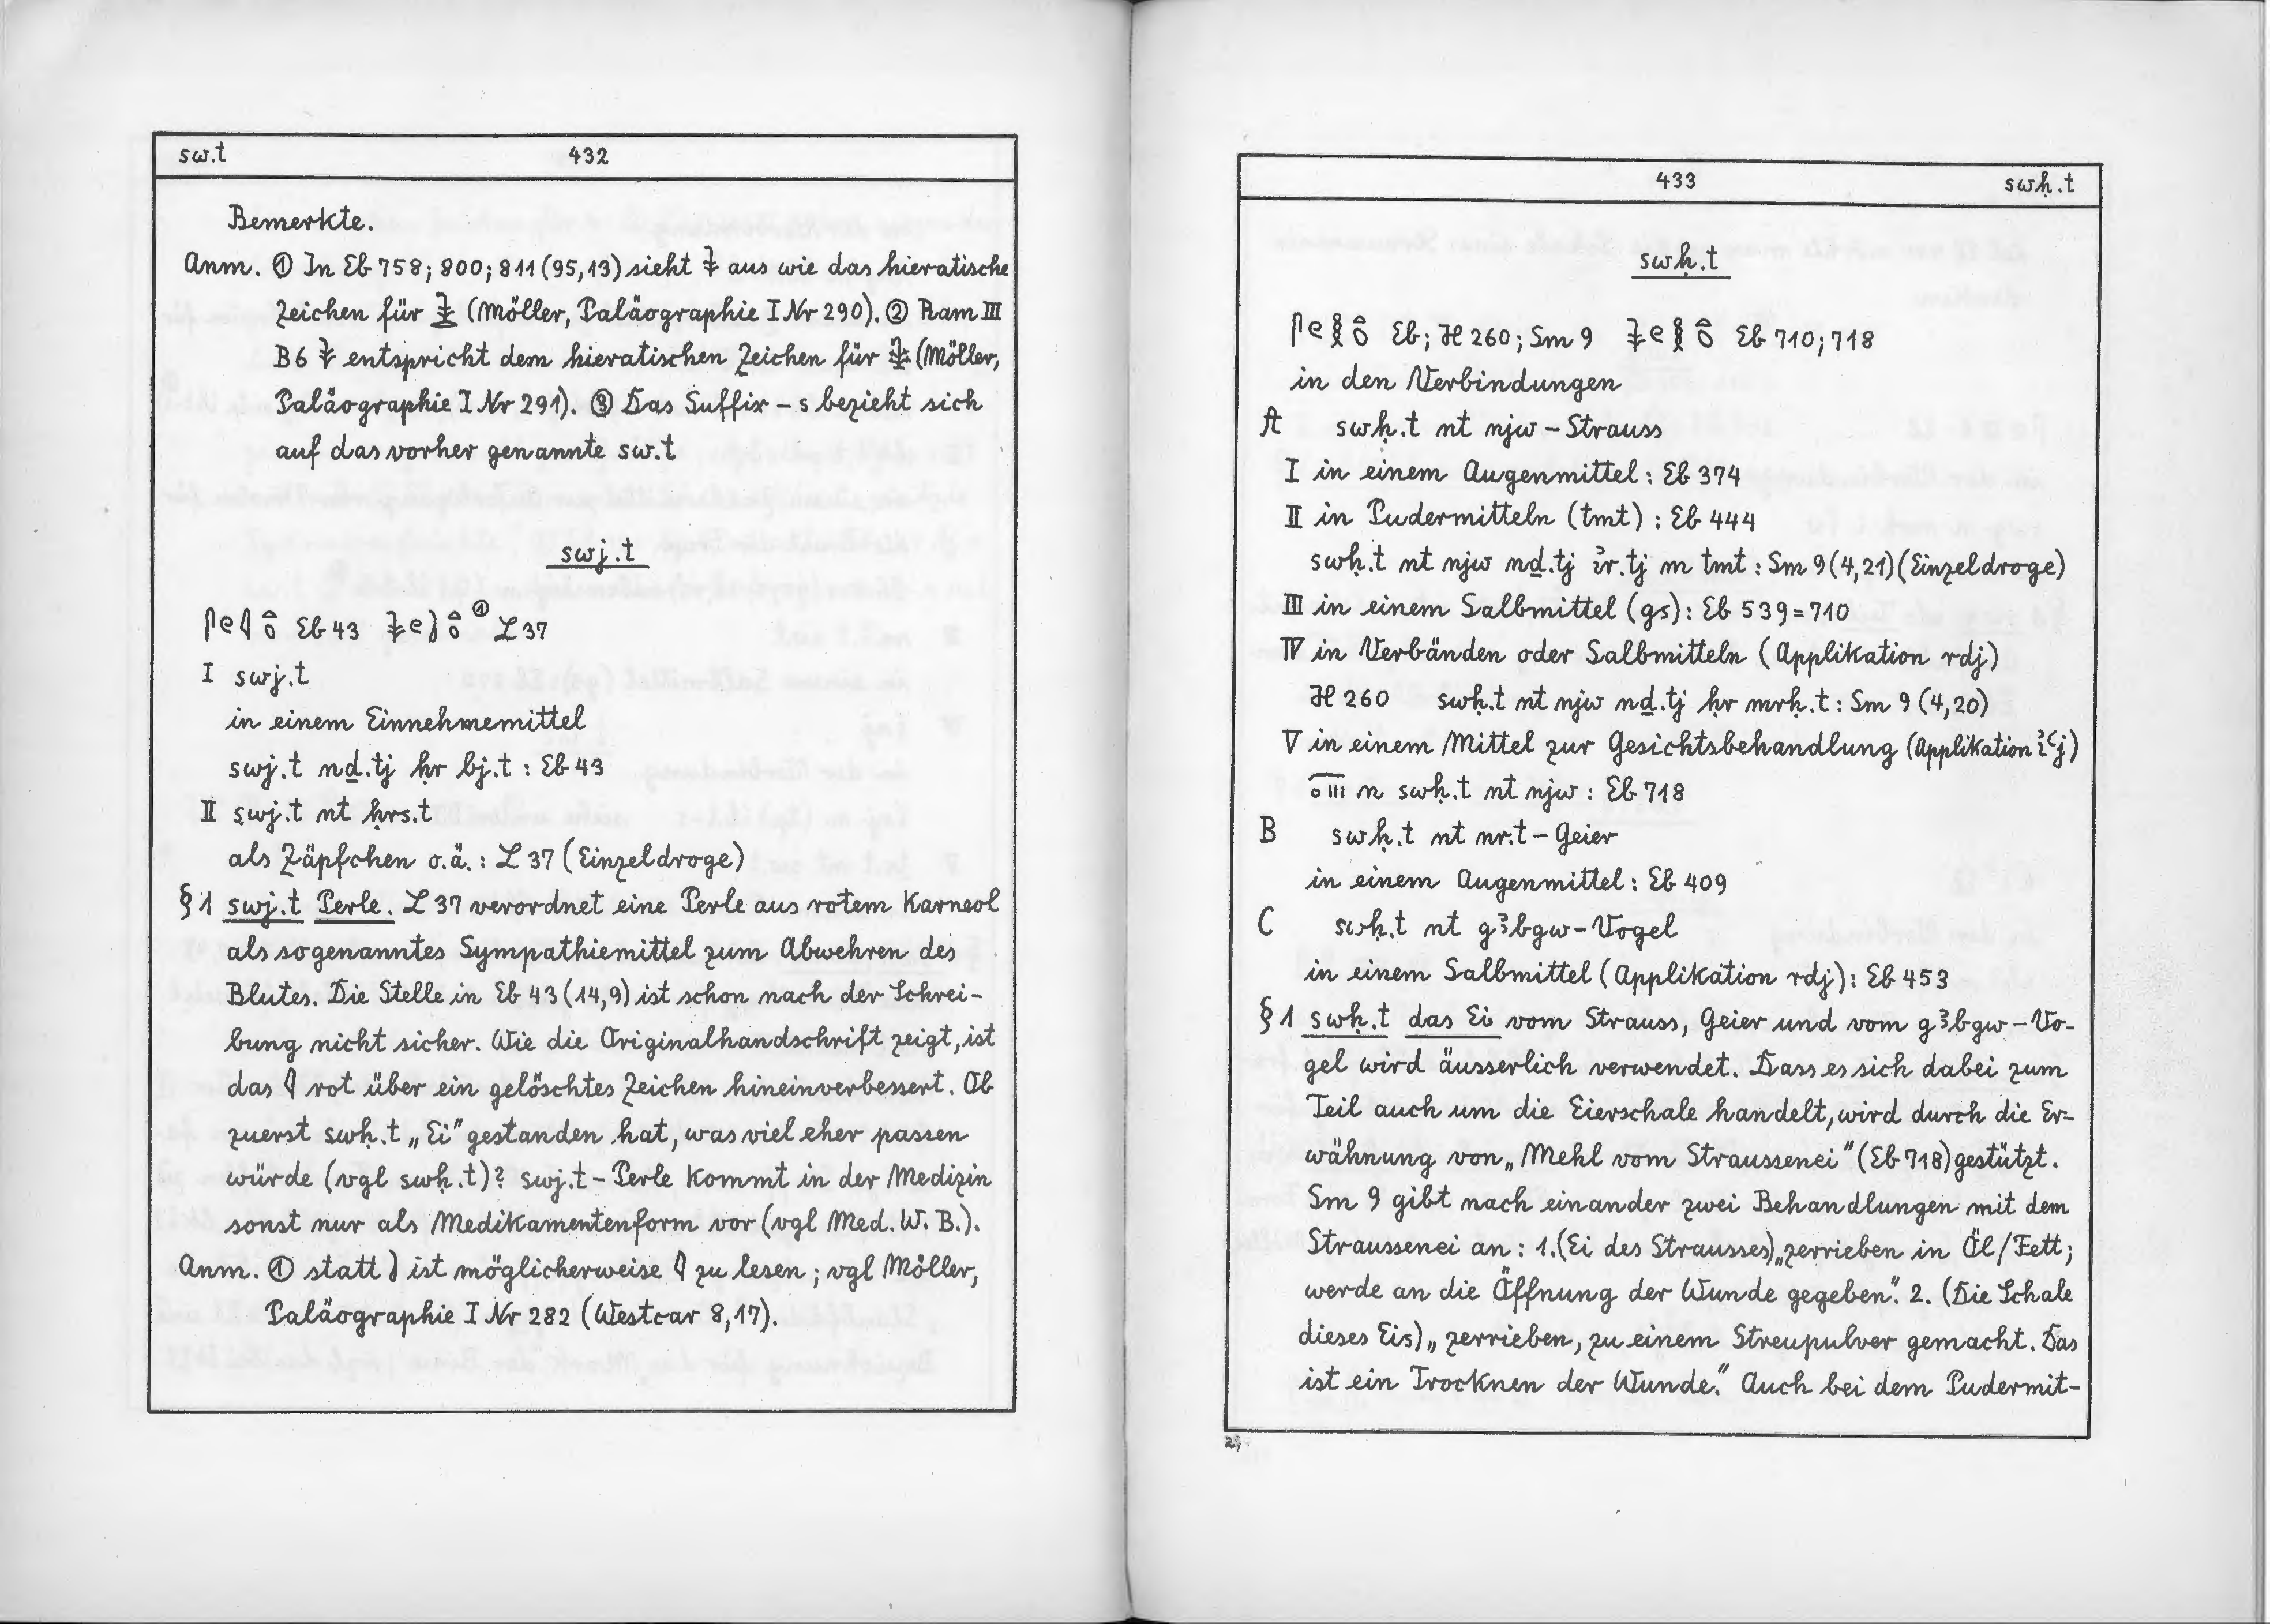 sw.t 432
Bemerkte.
Anm. ① In Eb 758; 800; 811 (95,13) sieht 𓇓 aus wie das hieratische
Zeichen für (Möller, Paläographie I Nr 290). ② Ram III
B6 entspricht dem hieratischen Zeichen für (Möller,
Paläographie I Nr 291). ③ Das Suffix – s bezieht sich
auf das vorher genannte sw.t
swj.t
Eb 43 ① L 37
I swj.t
in einem Einnehmemittel
swj.t nḏ.tj ḥr bj.t : Eb 43
II swj.t nt ḥrs.t
als Zäpfchen o.ä. : L 37 (Einzeldroge)
§ 1 swj.t Perle. L 37 verordnet eine Perle aus rotem Karneol
als sogenanntes Sympathiemittel zum Abwehren des
Blutes. Die Stelle in Eb 43 (14,9) ist schon nach der Schrei-
bung nicht sicher. Wie die Originalhandschrift zeigt, ist
das 𓇋 rot über ein gelöschtes Zeichen hineinverbessert. Ob
zuerst swḥ.t „Ei" gestanden hat, was viel eher passen
würde (vgl swḥ.t)? swj.t – Perle kommt in der Medizin
sonst nur als Medikamentenform vor (vgl Med. W. B.).
Anm. ① statt ist möglicherweise 𓇋 zu lesen ; vgl Möller,
Paläographie I Nr 282 (Westcar 8,17).
433 swḥ.t
swḥ.t
𓋴𓏲𓎛 Eb; H 260; Sm 9 𓇓𓏲𓎛 Eb 710; 718
in den Verbindungen
A swḥ.t nt njw – Strauss
I in einem Augenmittel : Eb 374
II in Pudermitteln (tmt) : Eb 444
swḥ.t nt njw nḏ.tj ỉr.tj m tmt : Sm 9 (4,21) (Einzeldroge)
III in einem Salbmittel (gs) : Eb 539 = 710
IV in Verbänden oder Salbmitteln (Applikation rdj)
H 260 swḥ.t nt njw nḏ.tj ḥr mrḥ.t : Sm 9 (4,20)
V in einem Mittel zur Gesichtsbehandlung (Applikation ỉꜥj)
n swḥ.t nt njw : Eb 718
B swḥ.t nt nr.t – Geier
in einem Augenmittel : Eb 409
C swḥ.t nt gꜣbgw – Vogel
in einem Salbmittel (Applikation rdj) : Eb 453
§ 1 swḥ.t das Ei vom Strauss, Geier und vom gꜣbgw – Vo-
gel wird äusserlich verwendet. Dass es sich dabei zum
Teil auch um die Eierschale handelt, wird durch die Er-
wähnung von „Mehl vom Straussenei" (Eb 718) gestützt.
Sm 9 gibt nach einander zwei Behandlungen mit dem
Straussenei an : 1. (Ei des Strausses) „zerrieben in Öl/Fett;
werde an die Öffnung der Wunde gegeben". 2. (Die Schale
dieses Eis) „zerrieben, zu einem Streupulver gemacht. Das
ist ein Trocknen der Wunde." Auch bei dem Pudermit-